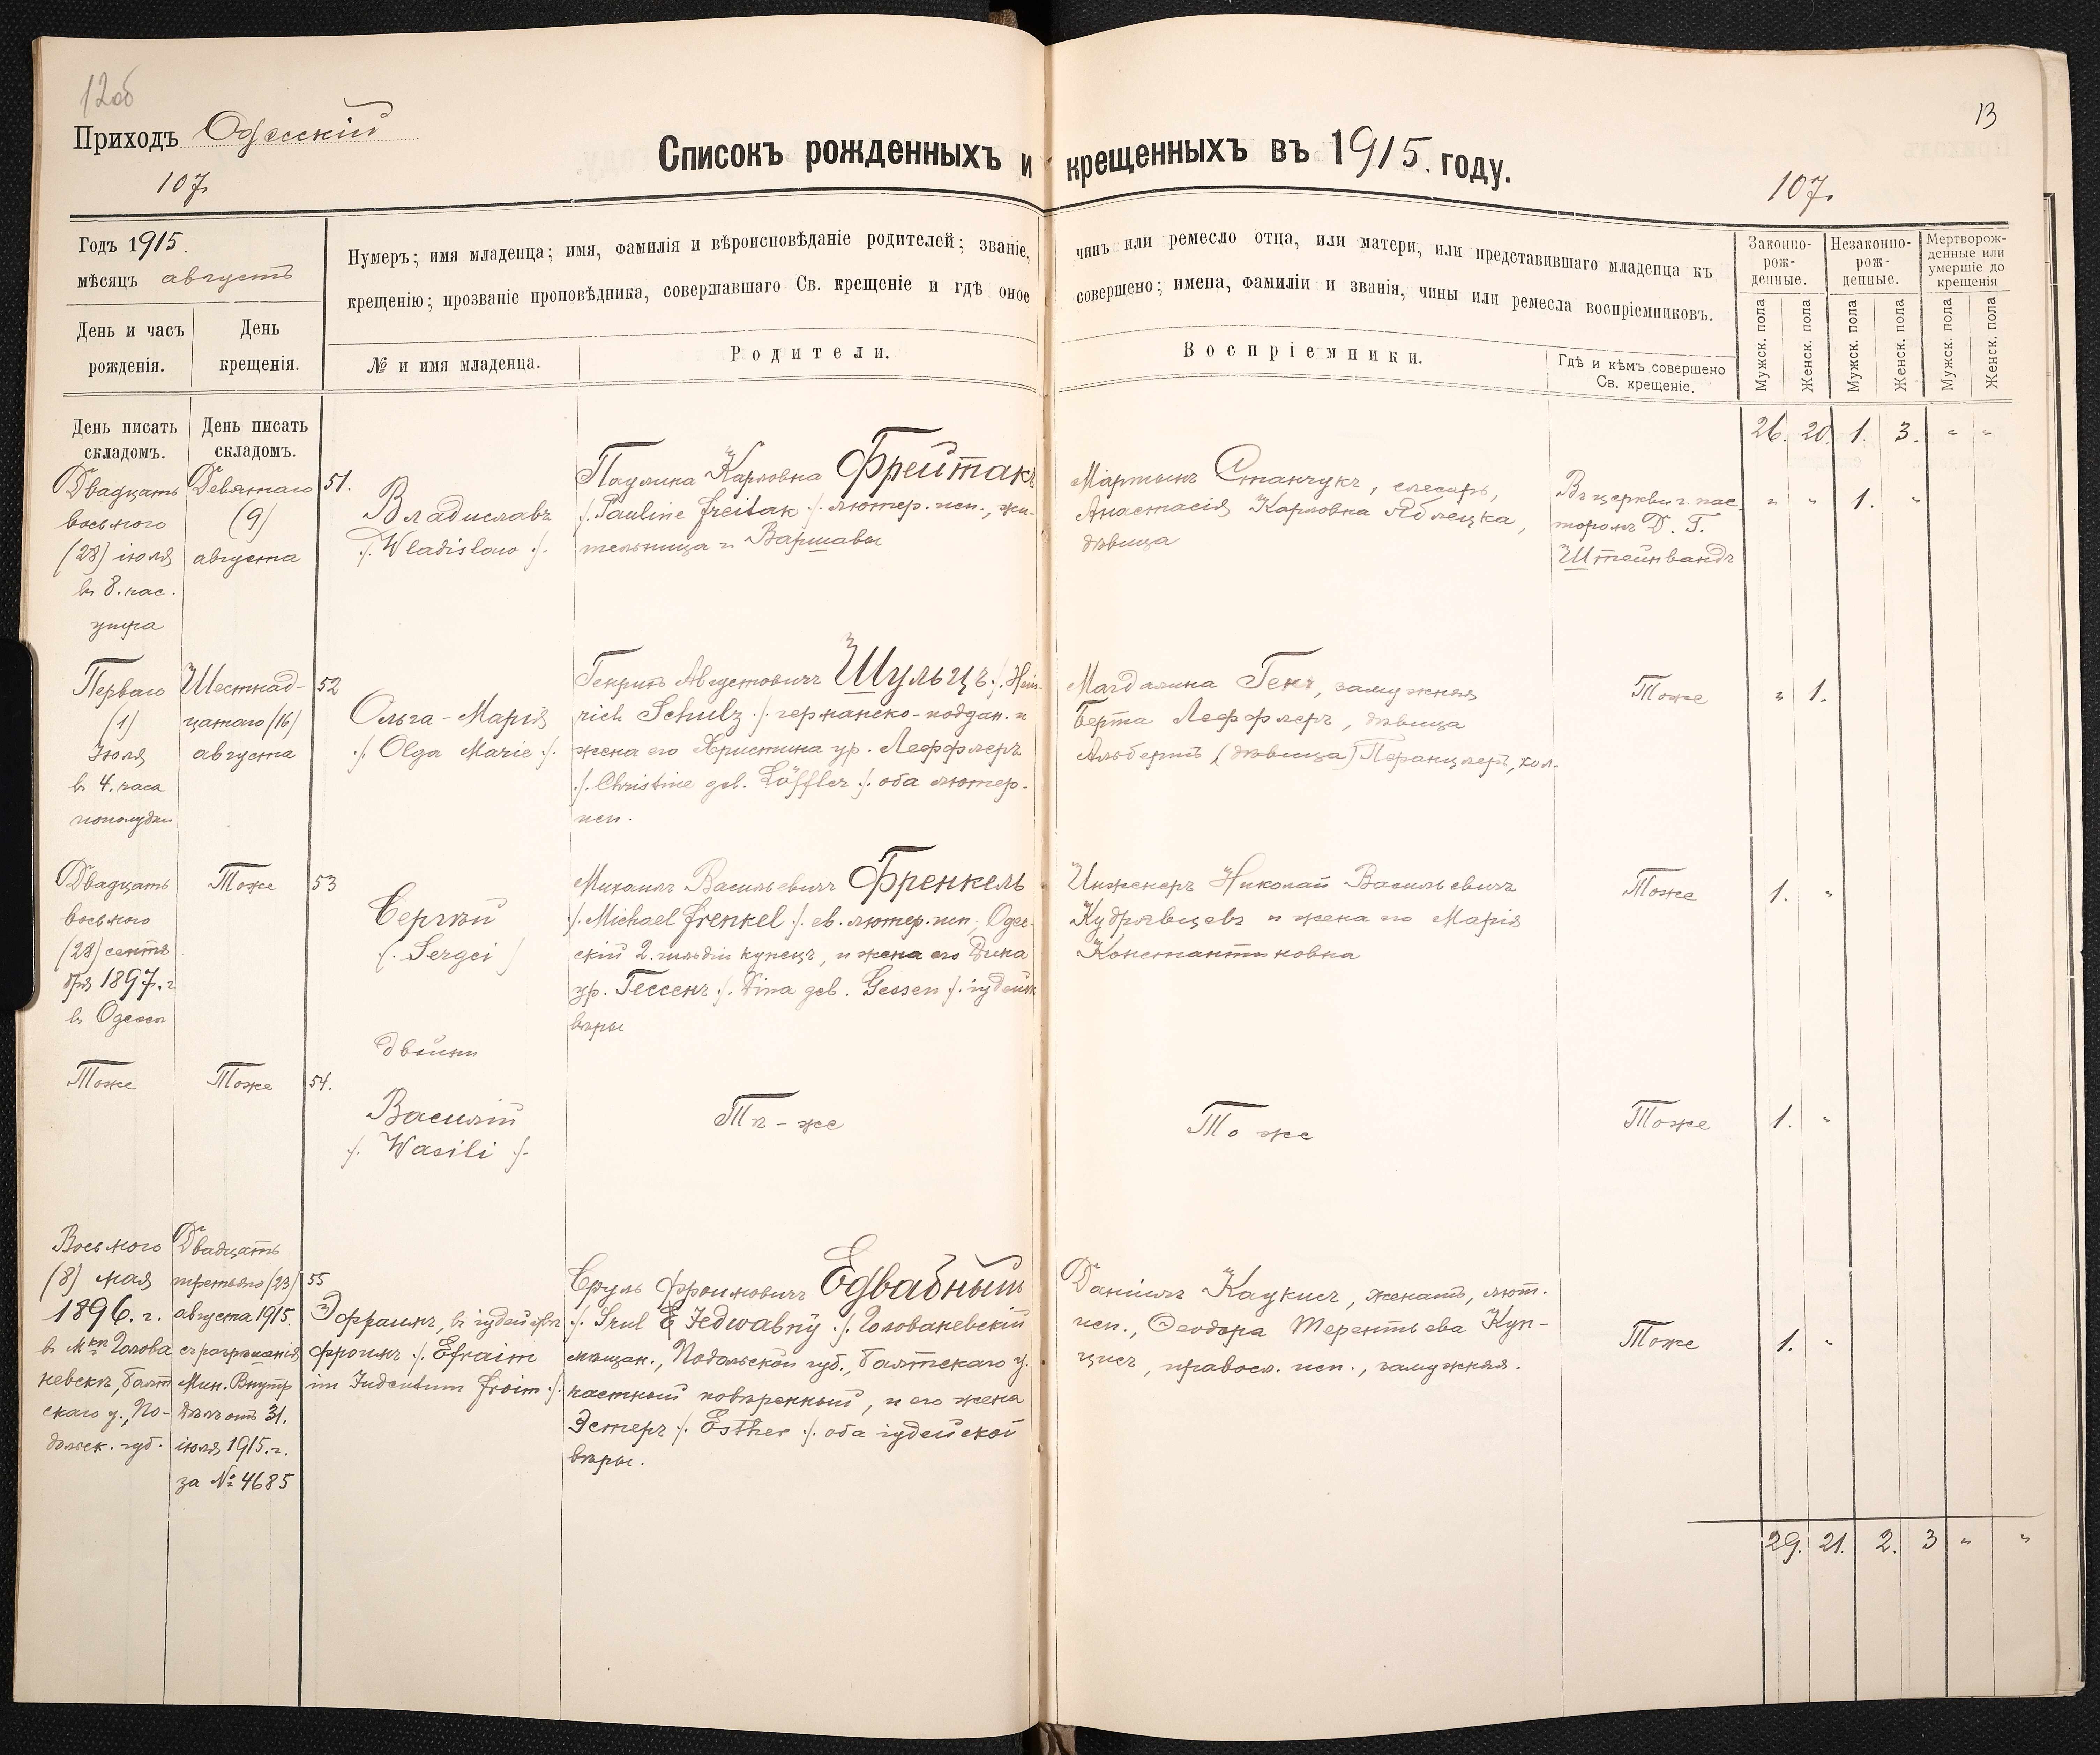 12об
Приходъ Одесскій
107.
13
107.
Списокъ рожденныхъ и крещенныхъ въ 1915. году.
Годъ 1915.
мѣсяцъ августъ
День и часъ
рожденія.
День
крещенія.
Нумеръ; имя младенца; имя, фамилія и вѣроисповѣданіе родителей; званіе, чинъ или ремесло отца, или матери, или представившаго младенца къ
крещенію; прозваніе проповѣдника, совершавшаго Св. крещеніе и гдѣ оное совершено; имена, фамиліи и званія, чины или ремесла воспріемниковъ.
№ и имя младенца.
Родители.
Воспріемники.
Гдѣ и кѣмъ совершено
Св. крещеніе.
Законно-
рож-
денные.
Незаконно-
рож-
денные.
Мертворож-
денные или
умершіе до
крещенія
Мужск. пола
Женск. пола
Мужск. пола
Женск. пола
Мужск. пола
Женск. пола
День писать
складомъ.
День писать
складомъ.
26. 20. 1. 3. " "
Двадцать
восьмого
(28) іюля
въ 8. час.
утра
Девятаго
(9)
августа
51.
Владиславъ
/. Wladislaw ./.
Паулина Карловна Фрейтакъ
/. Pauline Freitak ./. лютер. исп., жи-
тельница г. Варшавы
Мартынъ Станчукъ, слесарь,
Анастасія Карловна Яблецка,
дѣвица
Въ церкви г. пас-
торомъ Д. Г.
Штейнвандъ
" " 1. "
Перваго
(1)
Іюля
въ 4. часа
пополудни
Шестнад-
цатаго (16)
августа
52
Ольга-Марія
/. Olga Marie ./.
Генрихъ Августовичъ Шульцъ ./. Hein-
rich Schulz ./. германско-поддан. и
жена его Христина ур. Леффлеръ
./. Christine geb. Löffler ./. оба лютер.
исп.
Магдалина Генъ, замужняя
Берта Леффлеръ, дѣвица
Альбертъ (дѣвица) Перанцлеръ, хол.
Тоже
" 1.
Двадцать
восьмого
(28) сентя
бря 1897. г
въ Одессѣ
Тоже
53
Сергѣй
(. Sergei )
Михаилъ Васильевичъ Френкель
/. Michael Frenkel ./. ев. лютер. исп., Одес-
скій 2. гильдіи купецъ, и жена его Дина
ур. Гессенъ ./. Dina geb. Gessen ./. іудейск
вѣры
Инженеръ Николай Васильевичъ
Кудрявцевъ и жена его Марія
Константиновна
Тоже
1. "
двойни
Тоже
Тоже
54.
Василій
/. Wasili ./.
Тѣ-же
То же
Тоже
1. "
Восьмого
(8) мая
1896. г.
въ Мкѣ Голова
невскѣ, Балт
скаго у., По-
дольск. губ.
Двадцать
третьяго (23)
августа 1915.
съ разрѣшенія
Мин. Внутр
Дѣлъ отъ 31.
іюля 1915. г.
за № 4685
55
Эфраимъ, въ іудействѣ
Фроимъ ./. Efraim
im Judentum Froim ./.
Сруль Фроимовичъ Едвабный
./. Srul E Jedwabny ./. Голованевскій
мѣщан., Подольской губ., Балтскаго у.
частный повѣренный, и его жена
Эстеръ ./. Esther ./. оба іудейской
вѣры.
Даніилъ Каукисъ, женатъ, лют.
исп., Ѳеодора Терентьева Куп-
цисъ, правосл. исп., замужняя.
Тоже
1. "
29. 21. 2. 3 " "